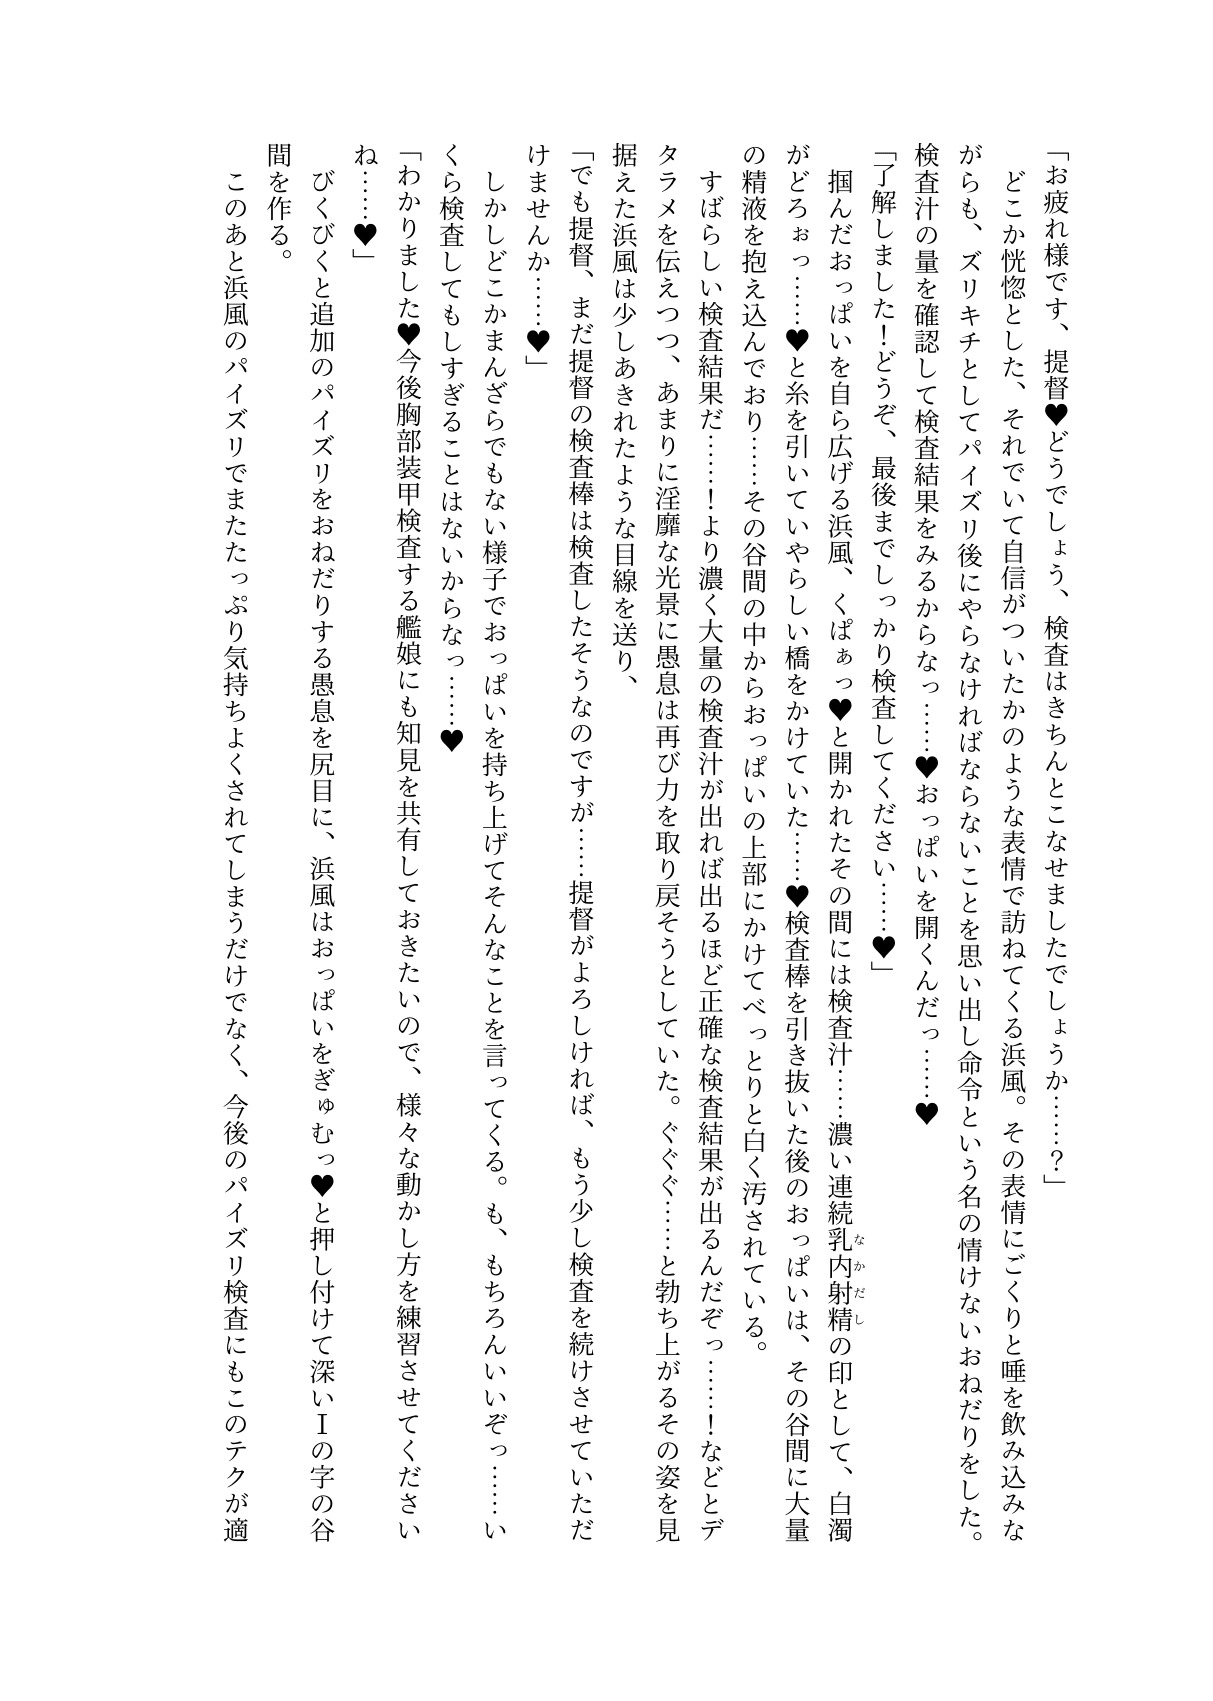 「お疲れ様です、提督♥どうでしょう、検査はきちんとこなせましたでしょうか……？」
　どこか恍惚とした、それでいて自信がついたかのような表情で訪ねてくる浜風。その表情にごくりと唾を飲み込みな
がらも、ズリキチとしてパイズリ後にやらなければならないことを思い出し命令という名の情けないおねだりをした。
検査汁の量を確認して検査結果をみるからなっ……♥おっぱいを開くんだっ……♥
「了解しました！どうぞ、最後までしっかり検査してください……♥」
　掴んだおっぱいを自ら広げる浜風、くぱぁっ♥と開かれたその間には検査汁……濃い連続乳内射精なかだしの印として、白濁
がどろぉっ……♥と糸を引いていやらしい橋をかけていた……♥検査棒を引き抜いた後のおっぱいは、その谷間に大量
の精液を抱え込んでおり……その谷間の中からおっぱいの上部にかけてべっとりと白く汚されている。
　すばらしい検査結果だ……！より濃く大量の検査汁が出れば出るほど正確な検査結果が出るんだぞっ……！などとデ
タラメを伝えつつ、あまりに淫靡な光景に愚息は再び力を取り戻そうとしていた。ぐぐぐ……と勃ち上がるその姿を見
据えた浜風は少しあきれたような目線を送り、
「でも提督、まだ提督の検査棒は検査したそうなのですが……提督がよろしければ、もう少し検査を続けさせていただ
けませんか……♥」
　しかしどこかまんざらでもない様子でおっぱいを持ち上げてそんなことを言ってくる。も、もちろんいいぞっ……い
くら検査してもしすぎることはないからなっ……♥
「わかりました♥今後胸部装甲検査する艦娘にも知見を共有しておきたいので、様々な動かし方を練習させてください
ね……♥」
　びくびくと追加のパイズリをおねだりする愚息を尻目に、浜風はおっぱいをぎゅむっ♥と押し付けて深いＩの字の谷
間を作る。
　このあと浜風のパイズリでまたたっぷり気持ちよくされてしまうだけでなく、今後のパイズリ検査にもこのテクが適